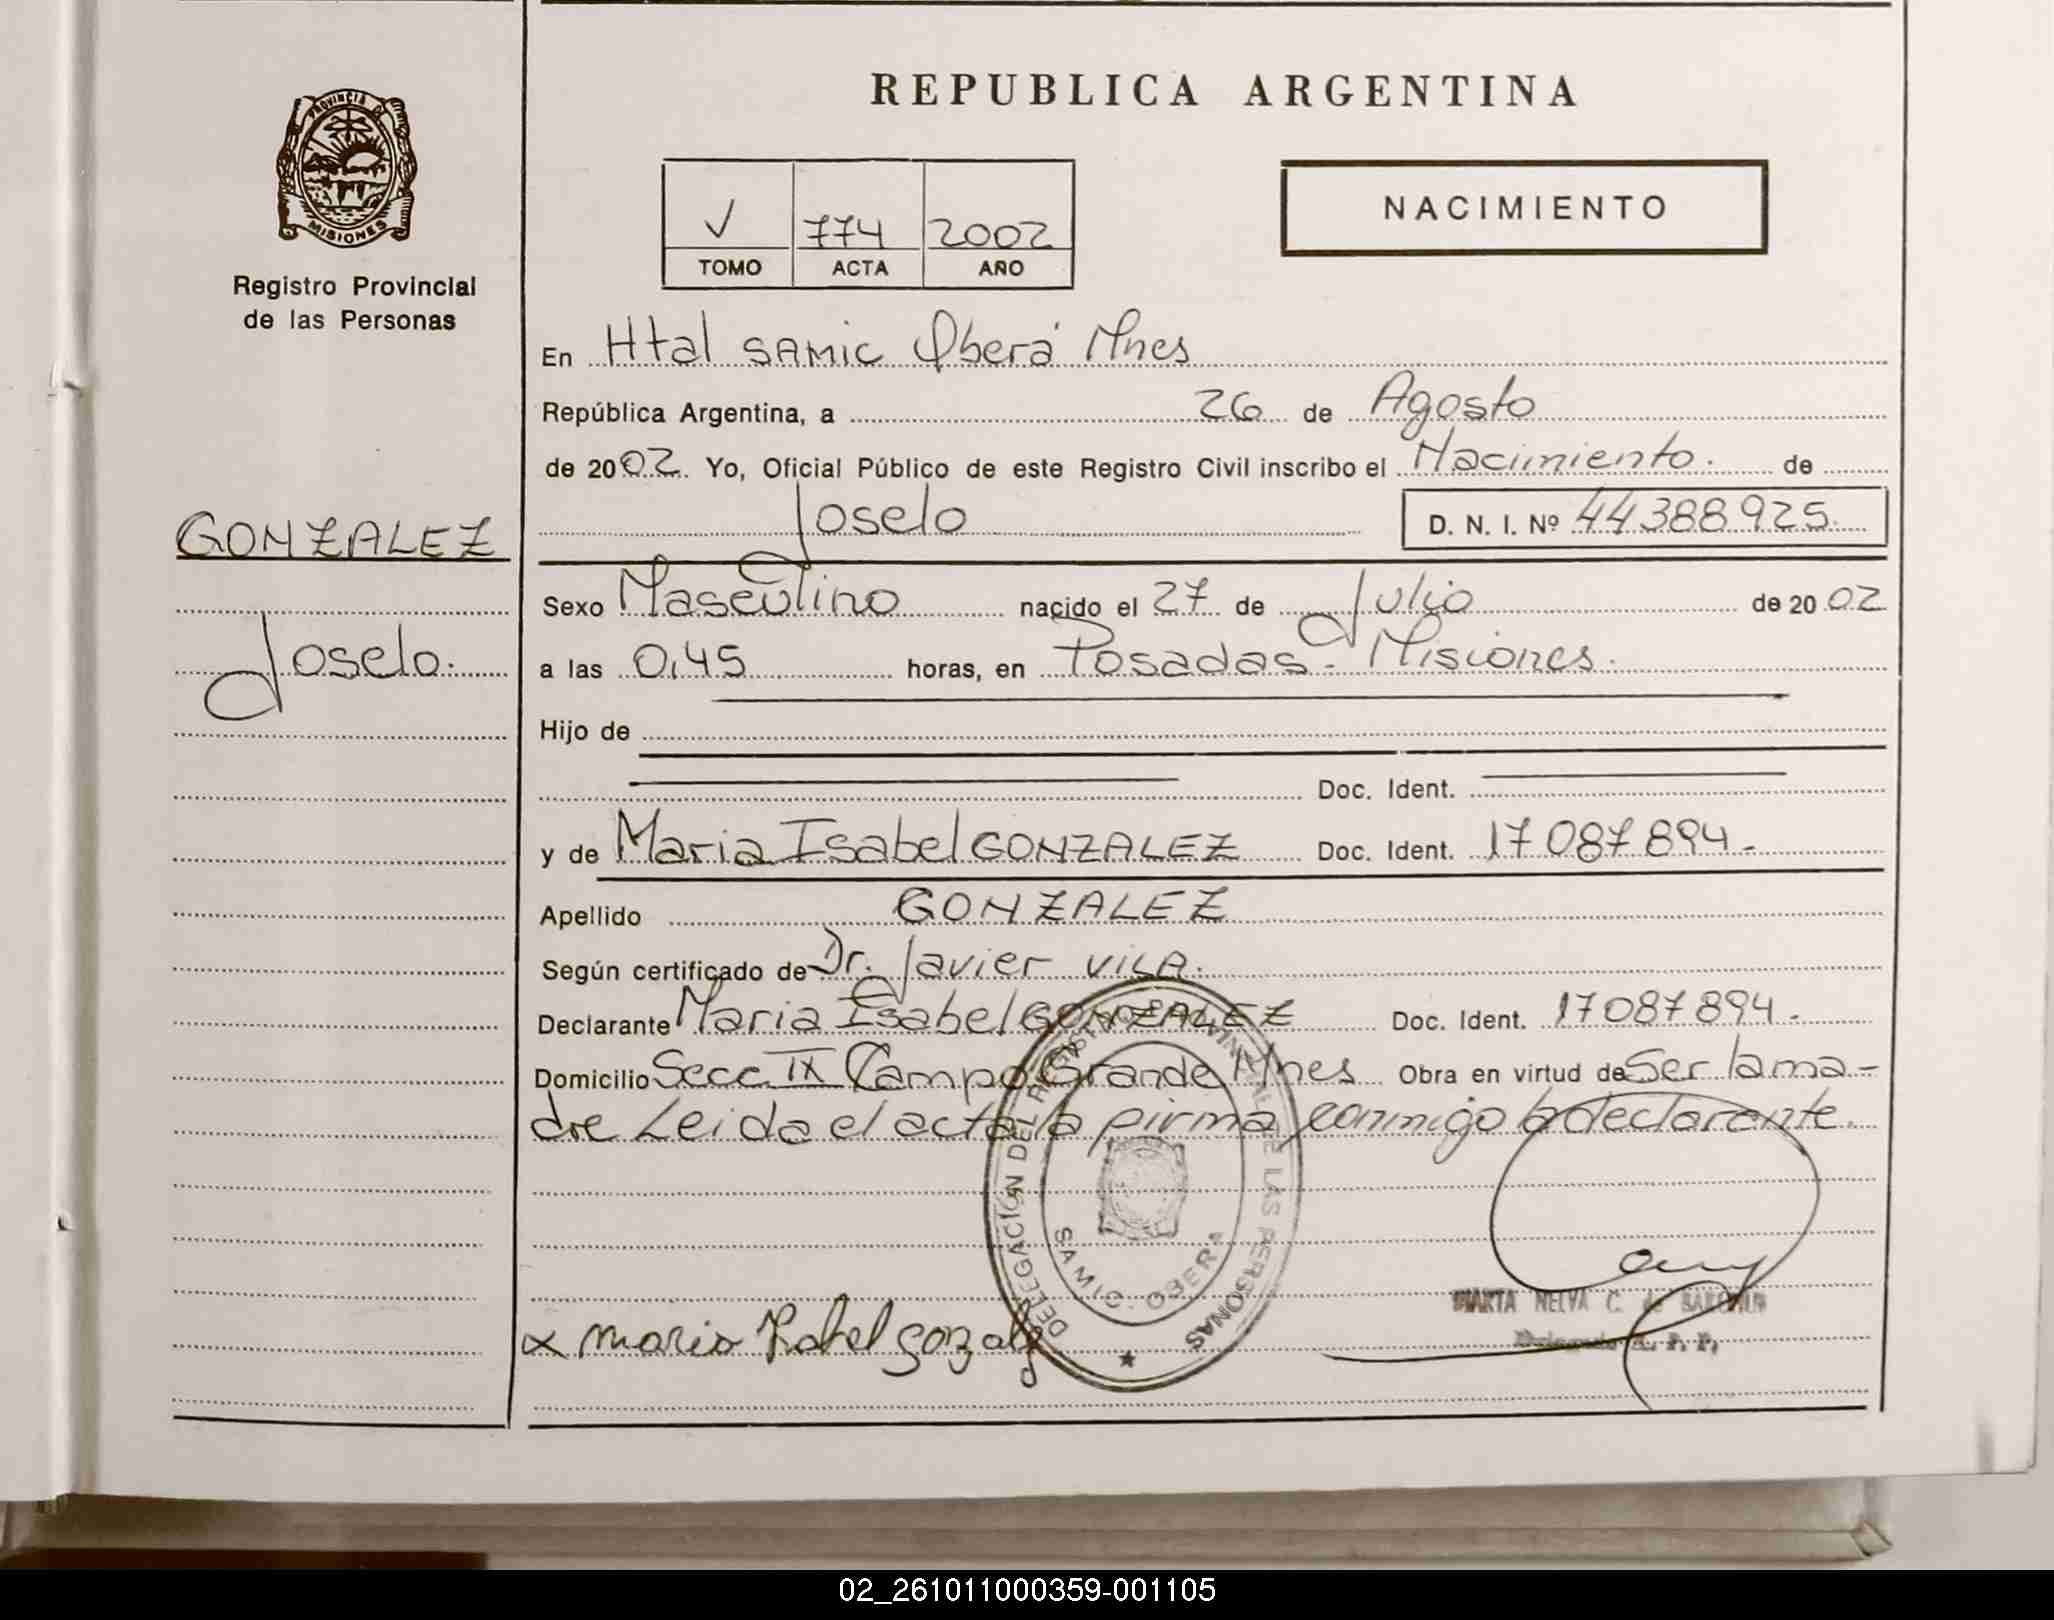 REPUBLICA ARGENTINA
PROVINCIA DE
MISIONES
Registro Provincial
de las Personas
V 774 2002
TOMO ACTA AÑO
NACIMIENTO
En Htal SAMIC Oberá Mnes
República Argentina, a 26 de Agosto
de 2002. Yo, Oficial Público de este Registro Civil inscribo el Nacimiento. de
Joselo D. N. I. Nº 44388925.
GONZALEZ
Joselo.
Sexo Masculino nacido el 27 de Julio de 2002
a las 0,45 horas, en Posadas - Misiones.
Hijo de
Doc. Ident.
y de Maria Isabel GONZALEZ Doc. Ident. 17087894.-
Apellido GONZALEZ
Según certificado de Dr. Javier VILA.
Declarante Maria Isabel GONZALEZ Doc. Ident. 17087894.-
Domicilio Secc IX Campo Grande Mnes Obra en virtud de Ser la ma-
dre Leida el acta la firma conmigo la declarante.
DELEGACIÓN DEL REGISTRO PROVINCIAL DE LAS PERSONAS
SAMIC - OBERA
MARTA NELVA C. de
R. P. P.
x maria Isabel gonzalez
02_261011000359-001105